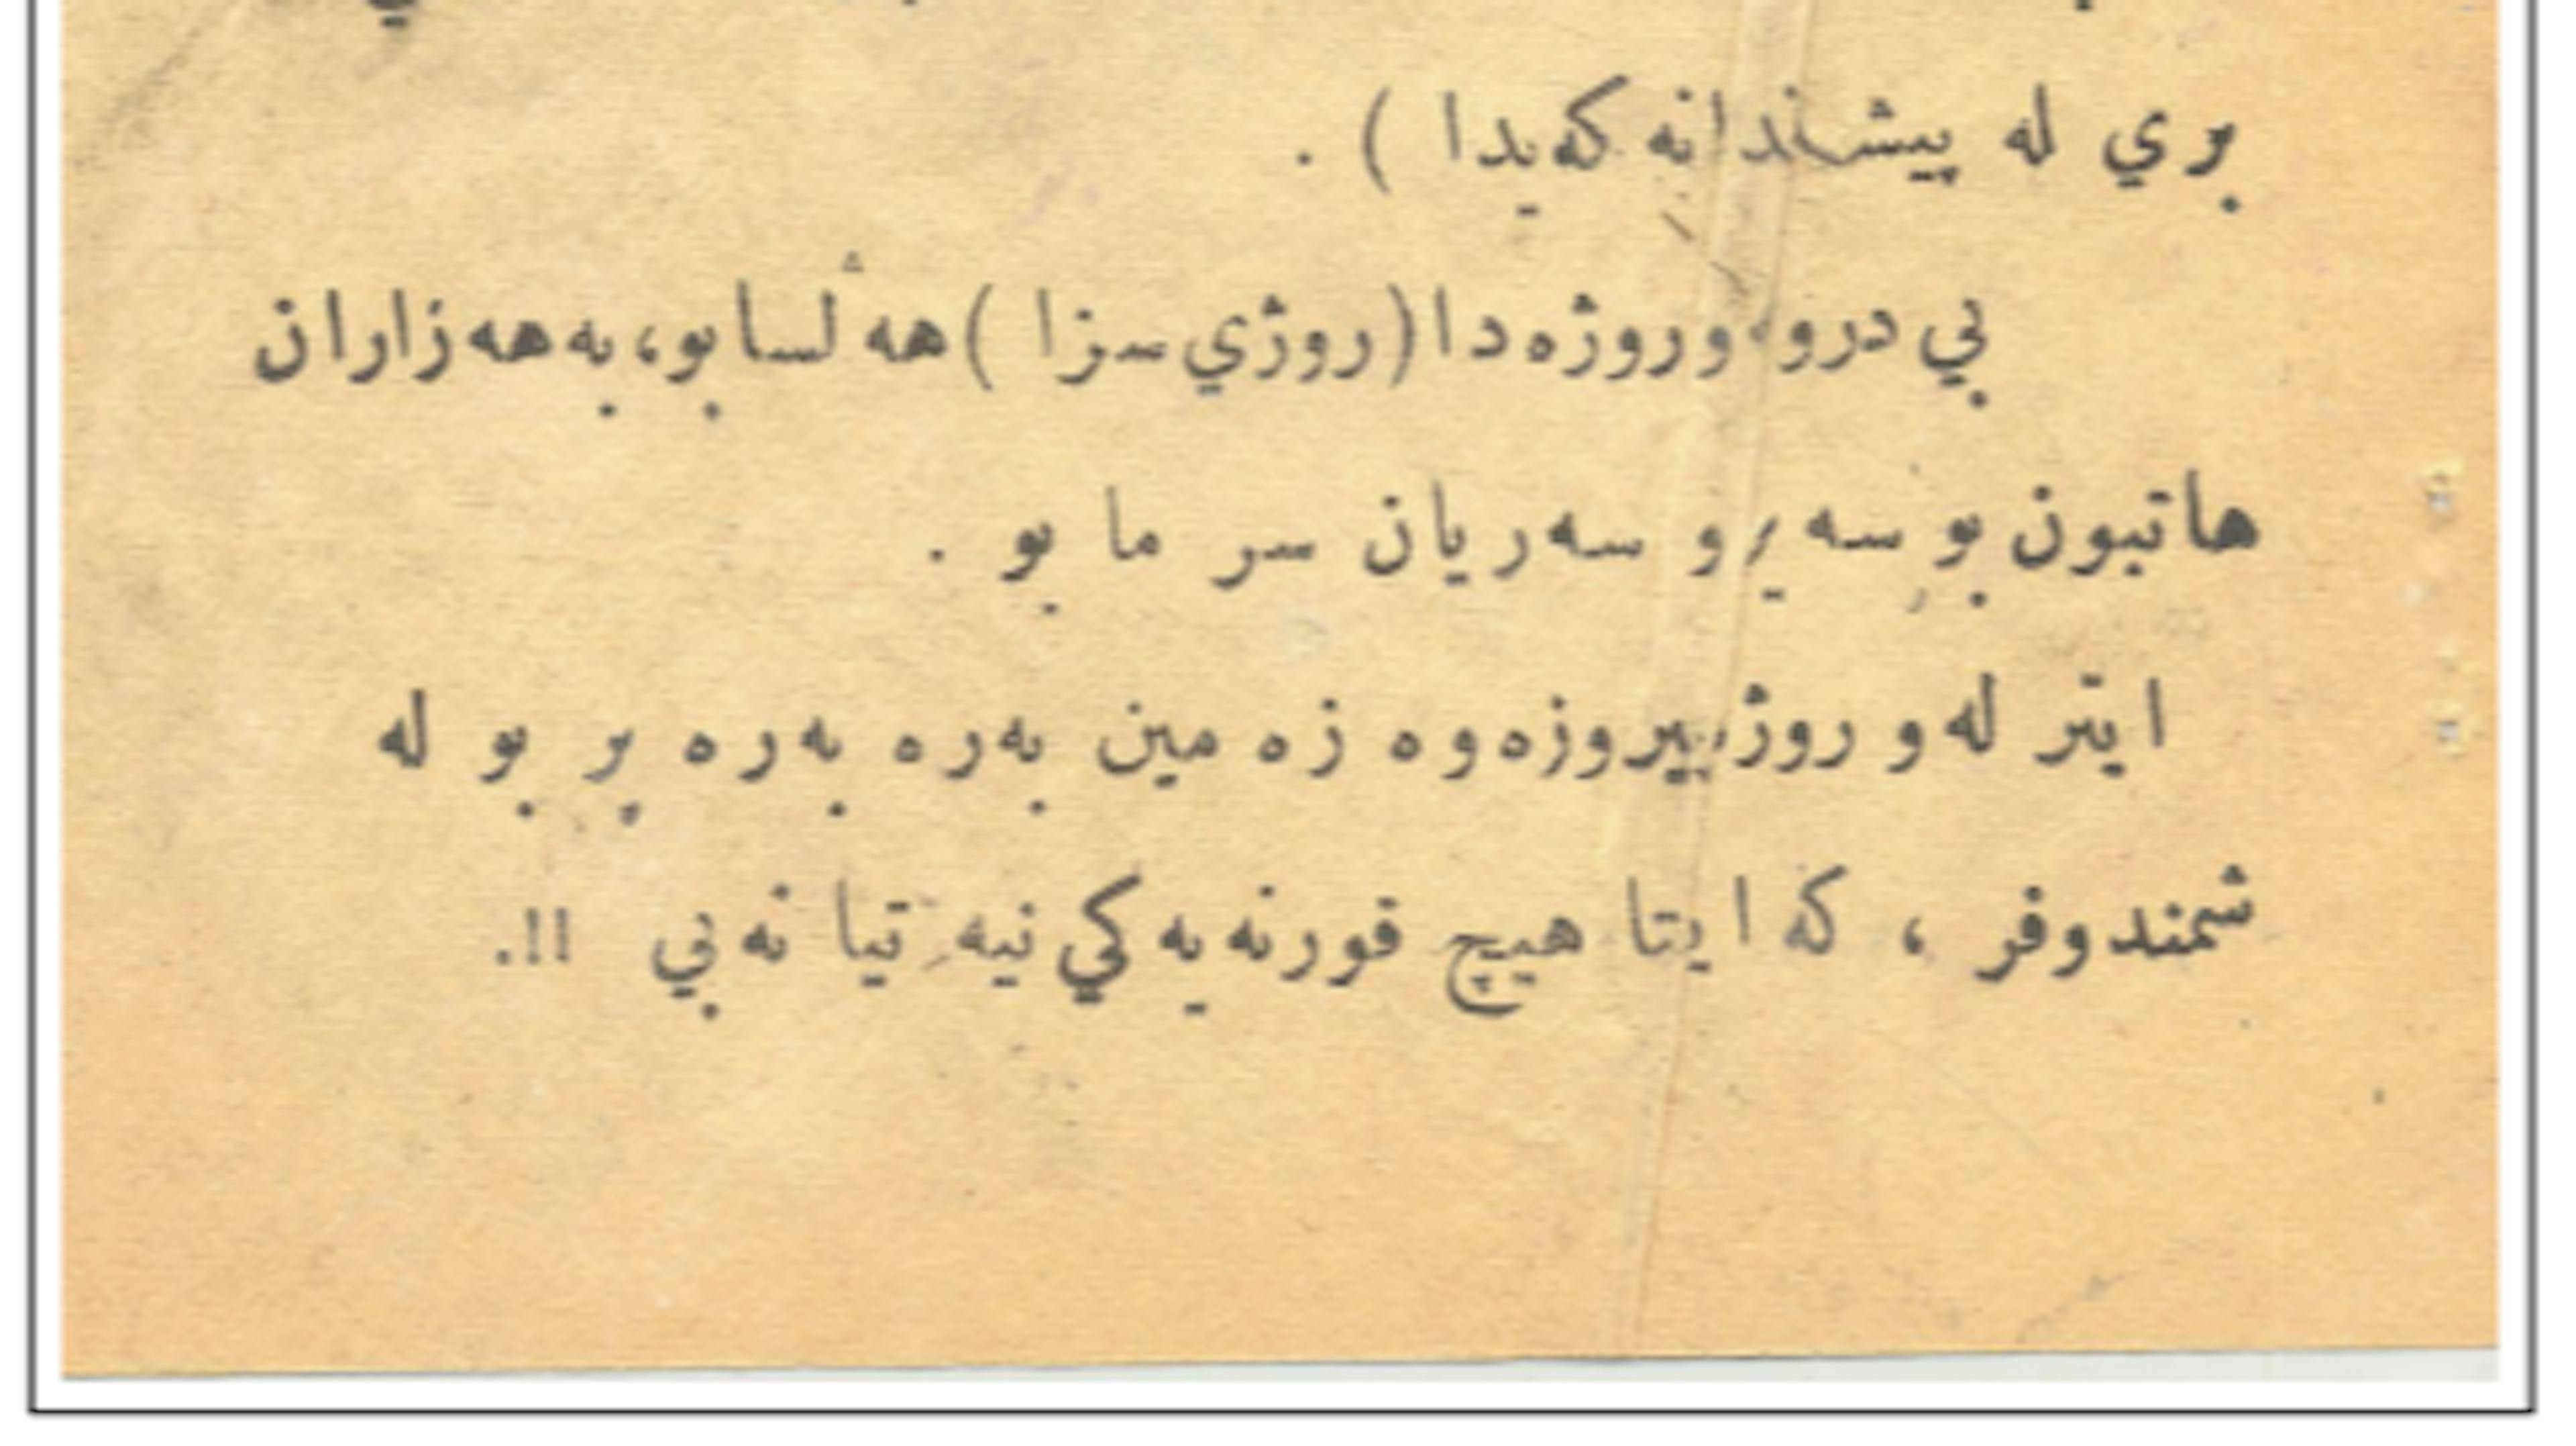 بري له پيشندانه كه يدا ) .
بي درو وروژه دا (روژي سزا ) هه ڵسا بو، به هه زاران
هاتبون بو سه ير و سه ريان سر ما بو .
ايتر له و روژ پيروزه وه زه مين به ره به ره پر بو له
شمندوفر ، كه ايتا هيچ قورنه يه كي نيه تيا نه بي !!.